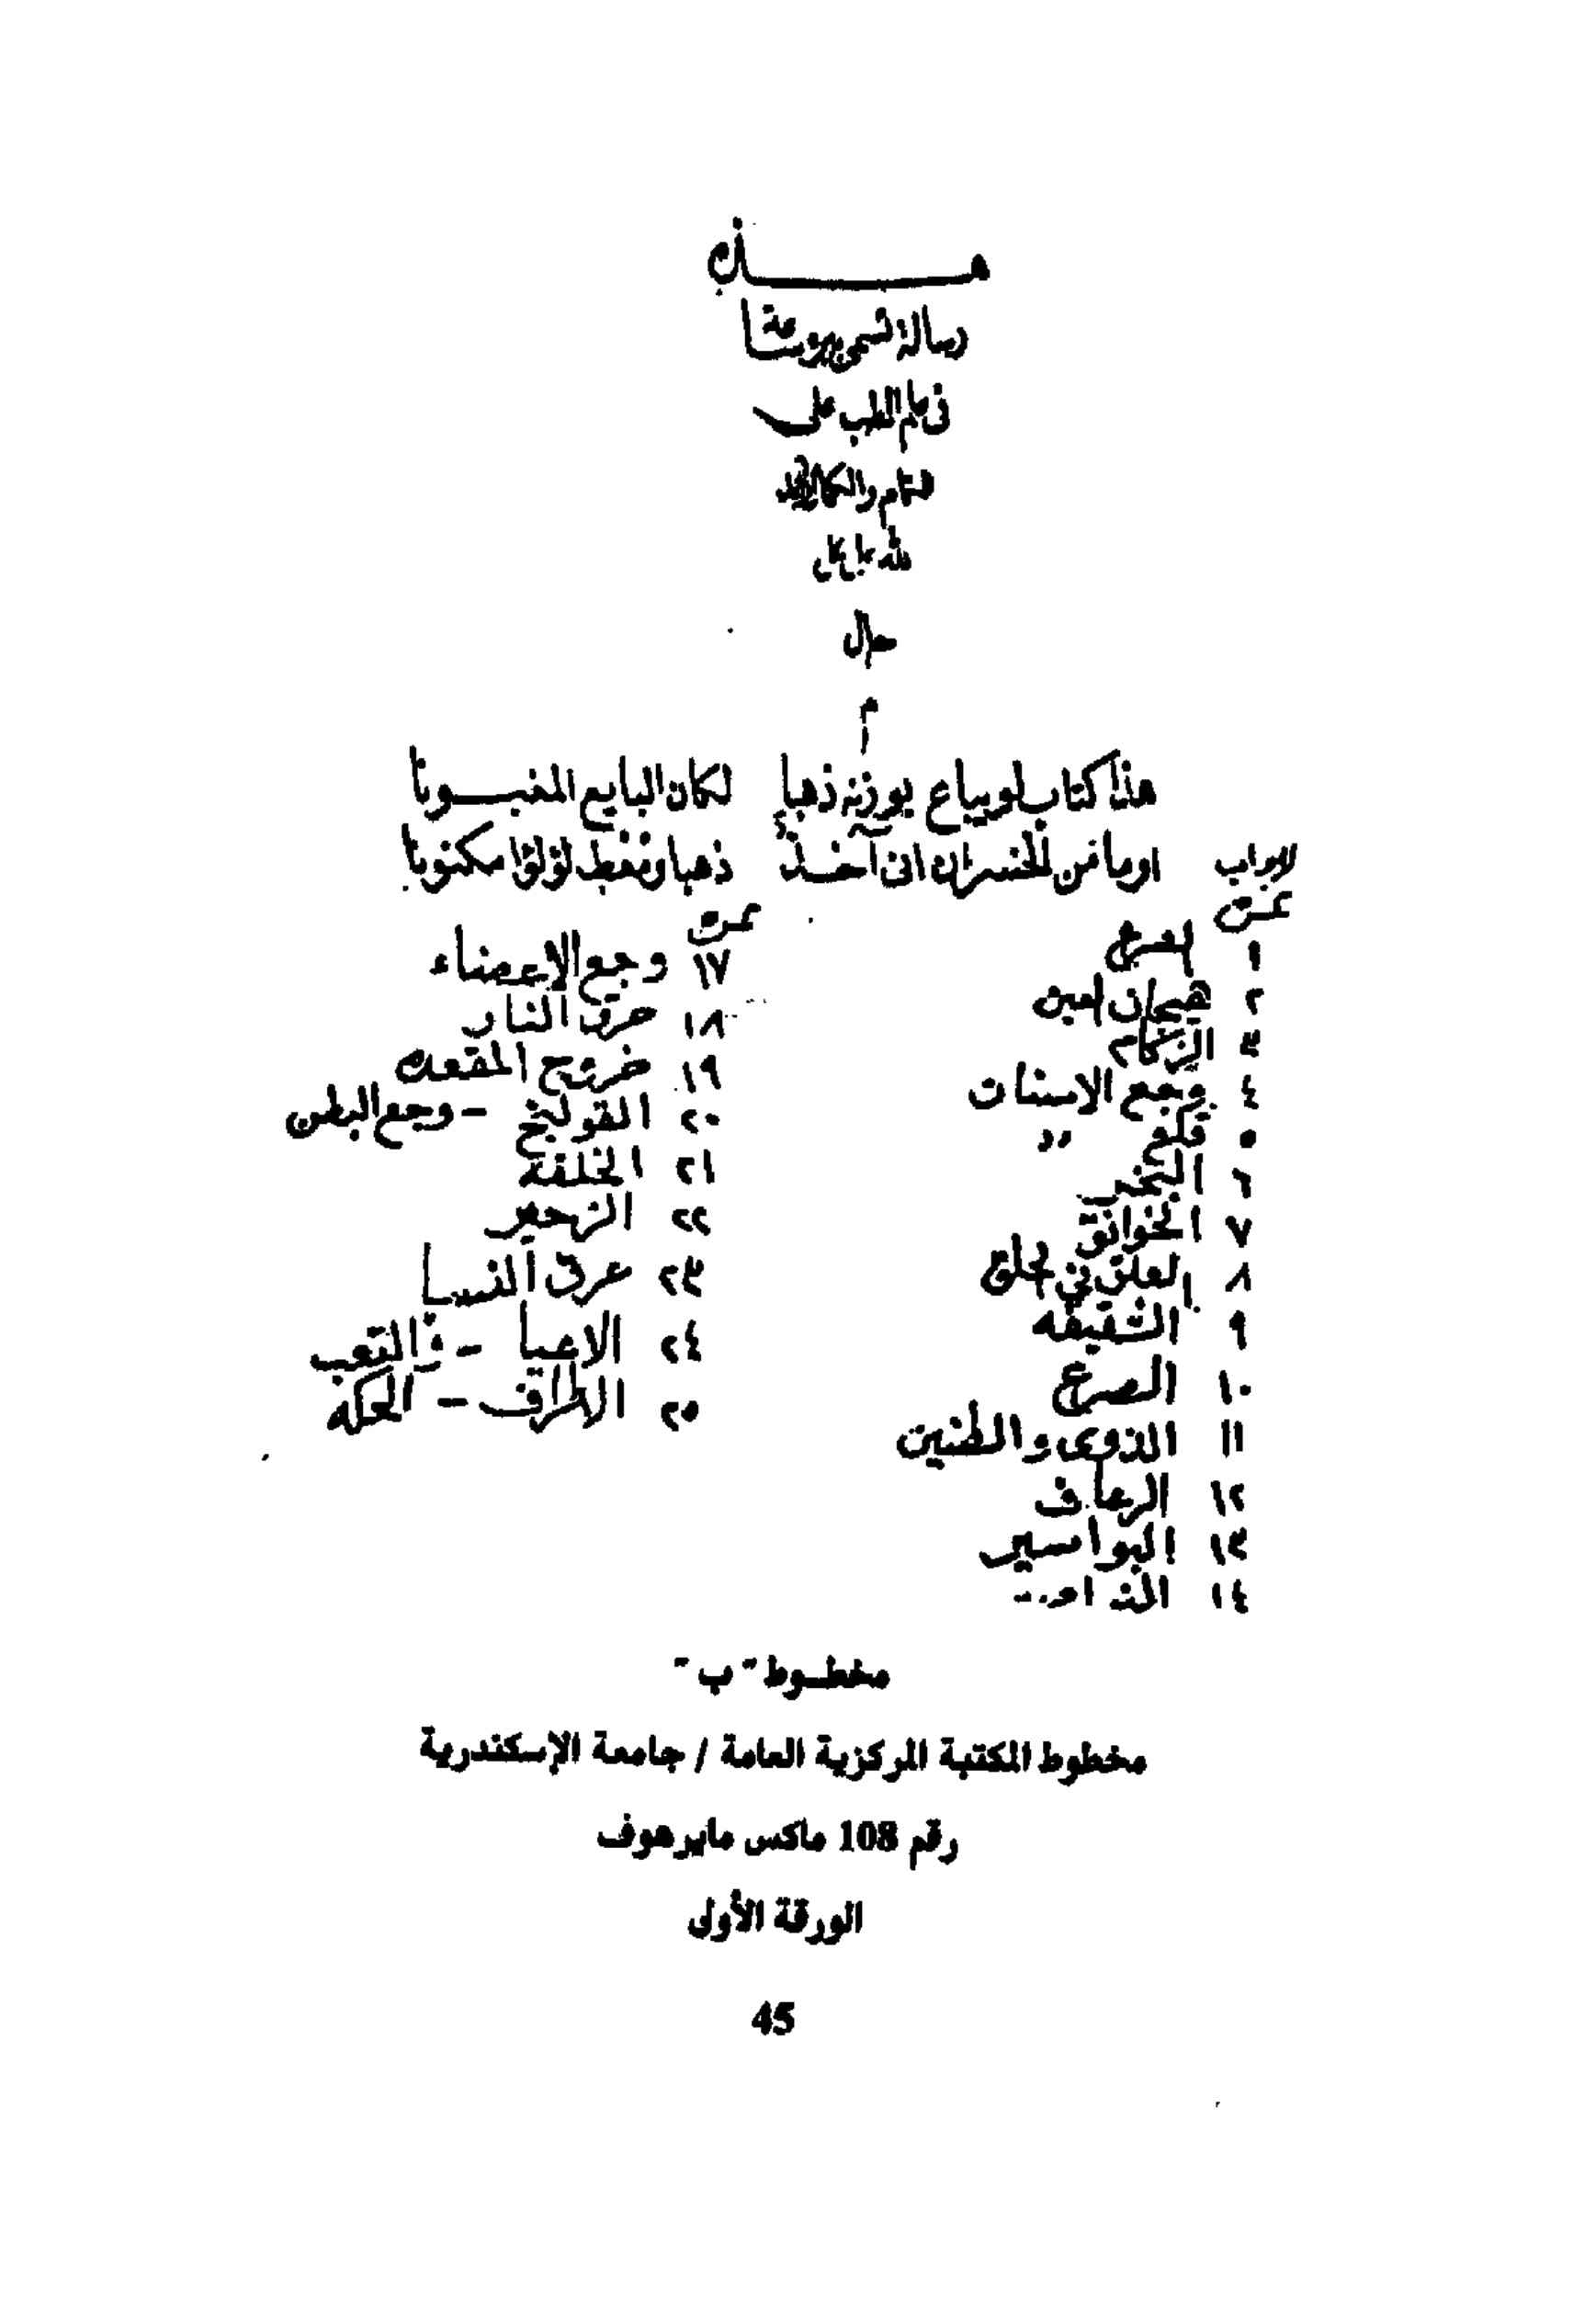 هـــــذه
رسالة برء ساعة
في علم الطب على
التمام والكمال والحمد
لله على كل
حال
م
هذا كتاب لو يباع بوزنه ذهبا لكان البايع المغبــونا
اوما من الخسران انى آخـــذ ذهبا ونعطى لؤلؤا مكنونا
الابواب
١ الصرع
٢ هيجان العين
٣ الزكام
٤ وجع الاسنان
٥ قلع "
٦ البخر
٧ الخوانق
٨ العلق في الحلق
٩ الشقيقه
١٠ الصرع
١١ الدوى والطنين
١٢ الرعاف
١٣ البواسير
١٤ النداو..
١٧ وجع الاعضاء
١٨ حرق النار
١٩ خروج المقعده
٢٠ القولنج - وجع البطن
٢١ الخلفة
٢٢ الزحير
٢٣ عرق النسا
٢٤ الاعيا - والتعب
٢٥ - الحكه
مخطوط "ب"
مخطوط المكتبة المركزية العامة / جامعة الإسكندرية
رقم 108 ماكس مايرهوف
الورقة الأولى
45